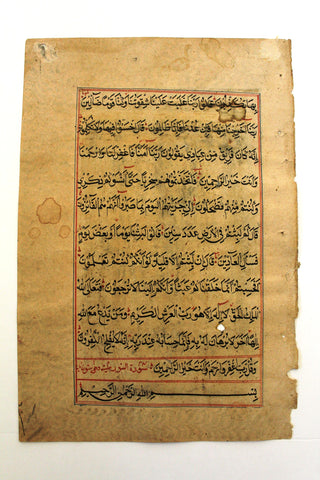 بِهَا تُكَذِّبُونَ قَالُوا رَبَّنَا غَلَبَتْ عَلَيْنَا شِقْوَتُنَا وَكُنَّا قَوْمًا ضَالِّينَ
رَبَّنَا أَخْرِجْنَا مِنْهَا فَإِنْ عُدْنَا فَإِنَّا ظَالِمُونَ قَالَ اخْسَئُوا فِيهَا وَلَا تُكَلِّمُونِ
إِنَّهُ كَانَ فَرِيقٌ مِنْ عِبَادِي يَقُولُونَ رَبَّنَا آمَنَّا فَاغْفِرْ لَنَا وَارْحَمْنَا
وَأَنْتَ خَيْرُ الرَّاحِمِينَ فَاتَّخَذْتُمُوهُمْ سِخْرِيًّا حَتَّى أَنْسَوْكُمْ ذِكْرِي
وَكُنْتُمْ مِنْهُمْ تَضْحَكُونَ إِنِّي جَزَيْتُهُمُ الْيَوْمَ بِمَا صَبَرُوا أَنَّهُمْ هُمُ الْفَائِزُونَ
قَالَ كَمْ لَبِثْتُمْ فِي الْأَرْضِ عَدَدَ سِنِينَ قَالُوا لَبِثْنَا يَوْمًا أَوْ بَعْضَ يَوْمٍ
فَسْئَلِ الْعَادِّينَ قَالَ إِنْ لَبِثْتُمْ إِلَّا قَلِيلًا لَوْ أَنَّكُمْ كُنْتُمْ تَعْلَمُونَ
أَفَحَسِبْتُمْ أَنَّمَا خَلَقْنَاكُمْ عَبَثًا وَأَنَّكُمْ إِلَيْنَا لَا تُرْجَعُونَ فَتَعَالَى اللَّهُ
الْمَلِكُ الْحَقُّ لَا إِلَهَ إِلَّا هُوَ رَبُّ الْعَرْشِ الْكَرِيمِ وَمَنْ يَدْعُ مَعَ اللَّهِ
إِلَهًا آخَرَ لَا بُرْهَانَ لَهُ بِهِ فَإِنَّمَا حِسَابُهُ عِنْدَ رَبِّهِ إِنَّهُ لَا يُفْلِحُ الْكَافِرُونَ
وَقُلْ رَبِّ اغْفِرْ وَارْحَمْ وَأَنْتَ خَيْرُ الرَّاحِمِينَ سورة النور
بِسْمِ اللَّهِ الرَّحْمَنِ الرَّحِيمِ